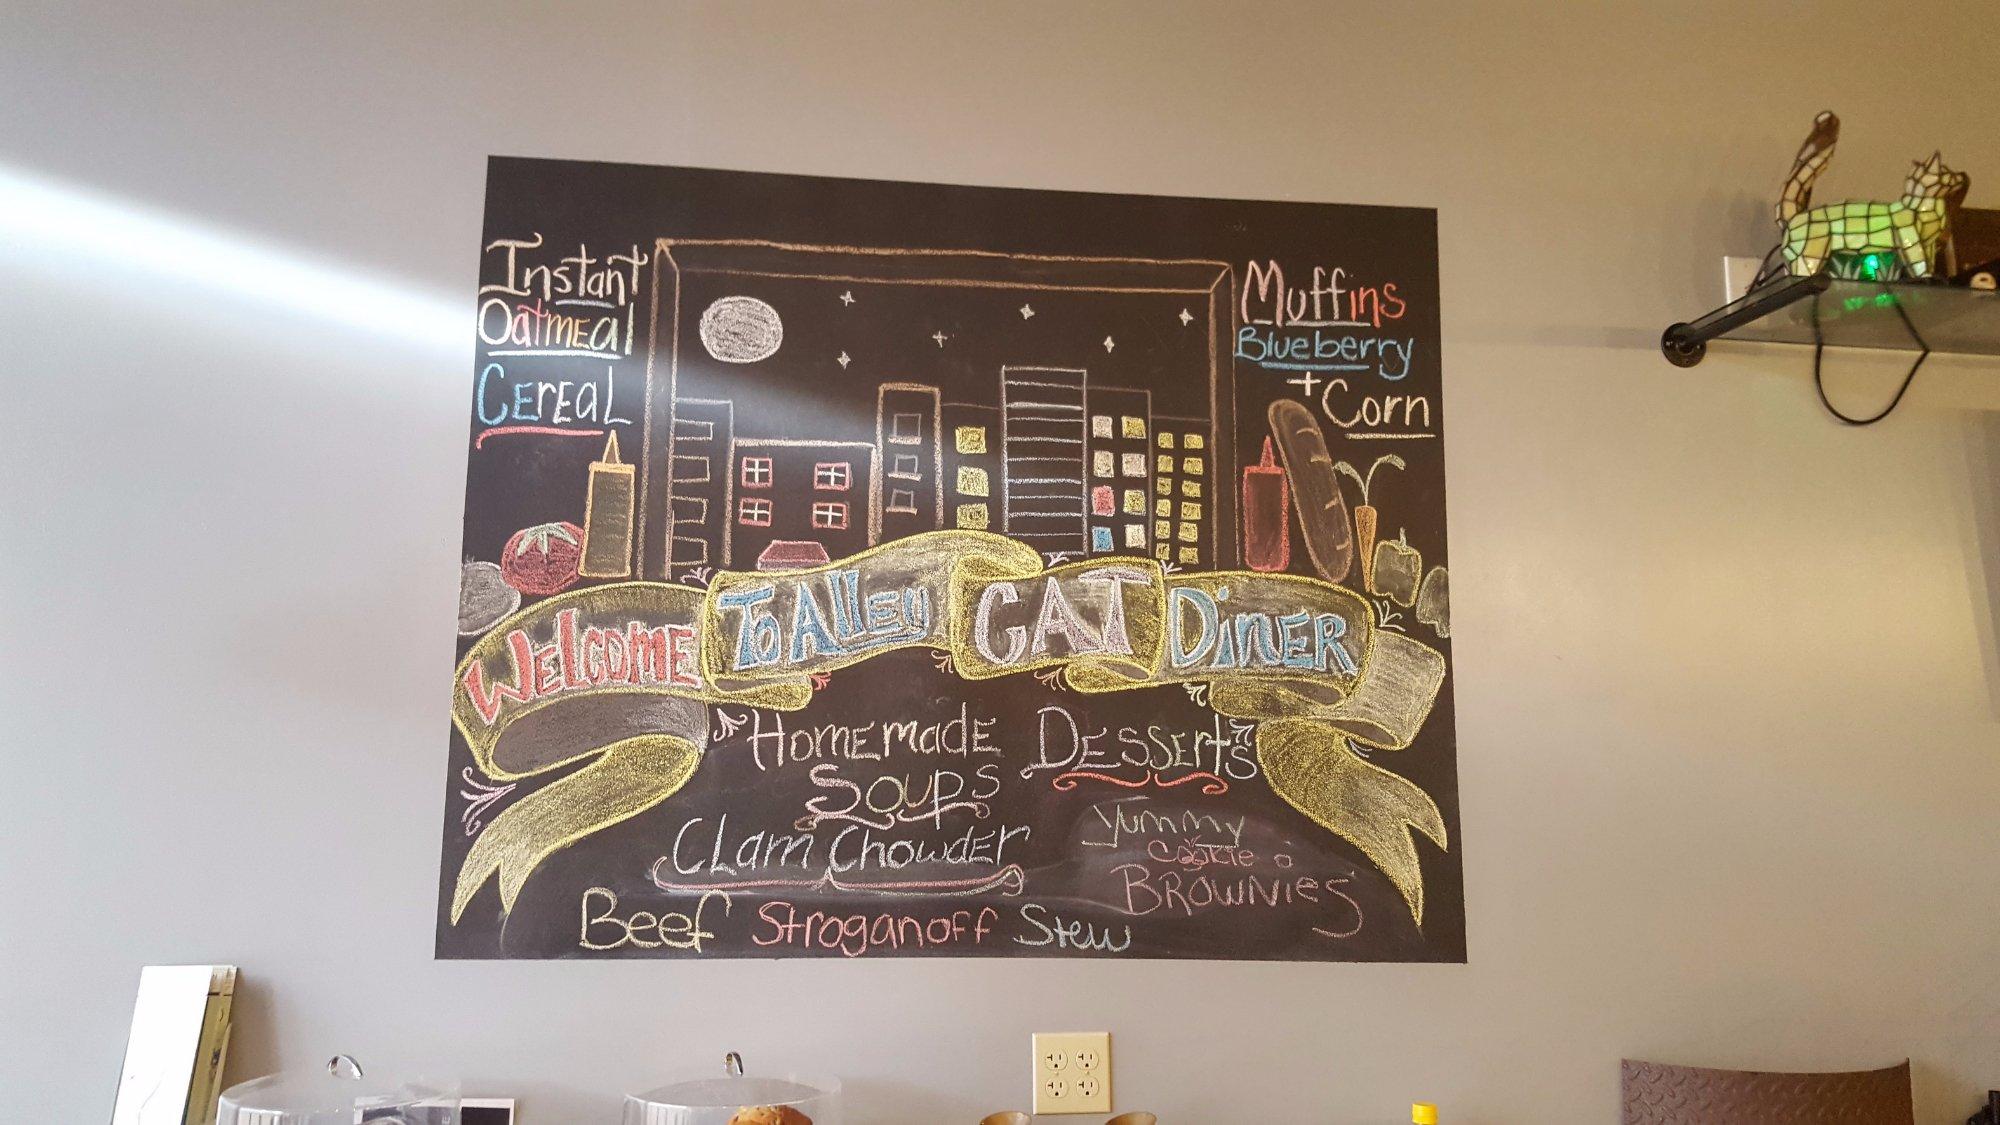 Instant
Oatmeal
Cereal
Muffins
Blueberry
+ Corn
Welcome To Alley CAT Diner
Homemade
Soups
Clam Chowder
Beef Stroganoff Stew
Desserts
Yummy
Cookie
Brownies